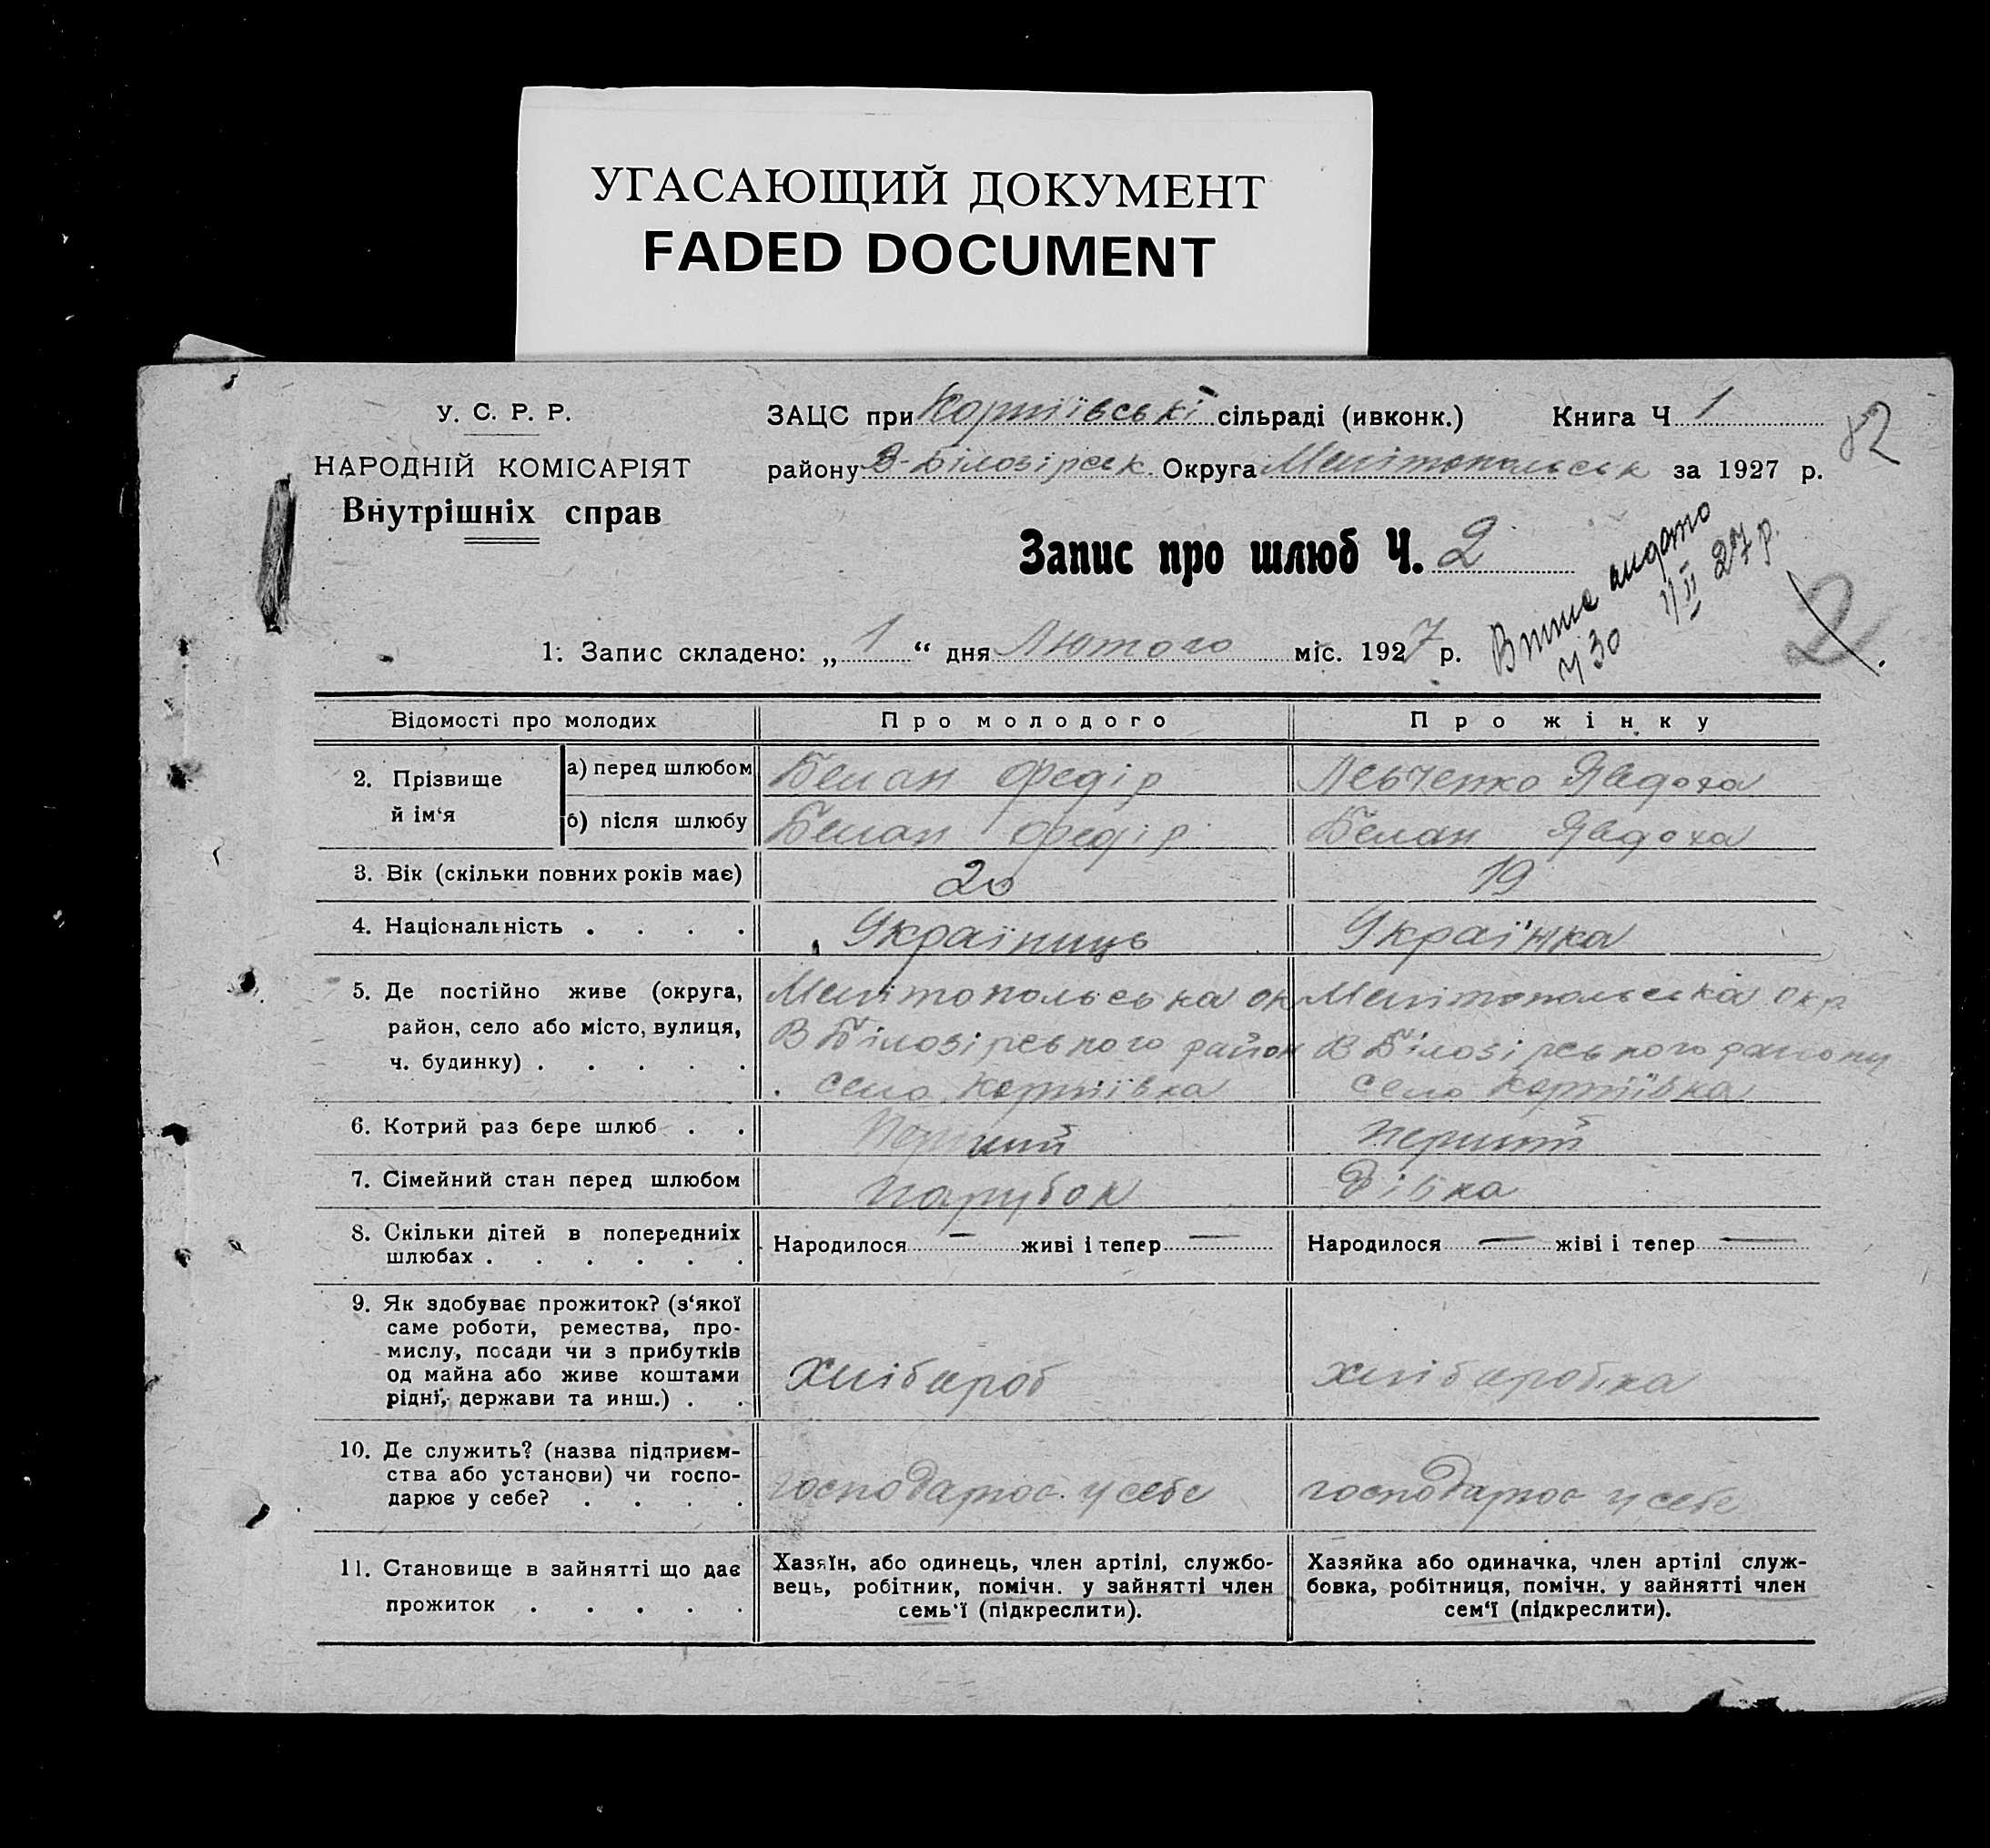 УГАСАЮЩИЙ ДОКУМЕНТ
FADED DOCUMENT
У. С. Р. Р.
НАРОДНІЙ КОМІСАРІЯТ
Внутрішніх справ
ЗАЦС при сільраді (ивконк.) Книга Ч 1
82
району В-Білозірськ. Округа Мелітопольськ за 1927 р.
Запис про шлюб Ч. 2
Витяг видано
Ч 30 1/II 27 р.
2
1. Запис складено: „ 1 “ дня Лютого міс. 1927 р.
Відомості про молодих Про молодого Про жінку
2. Прізвище й ім‘я
а) перед шлюбом Белан Федір Левченко Явдоха
б) після шлюбу Белан Федір Белан Явдоха
3. Вік (скільки повних років має) 20 19
4. Національність . . . . Українць Українка
5. Де постійно живе (округа,
район, село або місто, вулиця,
ч. будинку) . . . . .
Мелітопольська ок
В Білозірського район
село
Мелітопольська окр
В Білозірського району
село
6. Котрий раз бере шлюб . . Перший перший
7. Сімейний стан перед шлюбом парубок Дівка
8. Скільки дітей в попередниіх
шлюбах . . . . . .
Народилося — живі і тепер —
Народилося — жіві і тепер —
9. Як здобуває прожиток? (з‘якої
саме роботи, ремества, про-
мислу, посади чи з прибутків
од майна або живе коштами
рідні, держави та инш.) . .
Хлібороб
хлібаробка
10. Де служить? (назва підприєм-
ства або установи) чи госпо-
дарює у себе? . . . .
господарює у себе
господарює у себе
11. Становище в зайнятті що дає
прожиток . . . . .
Хазяїн, або одинець, член артілі, службо-
вець, робітник, помічн. у зайнятті член
семь‘ї (підкреслити).
Хазяйка або одиначка, член артілі служ-
бовка, робітниця, помічн. у зайнятті член
сем‘ї (підкреслити).